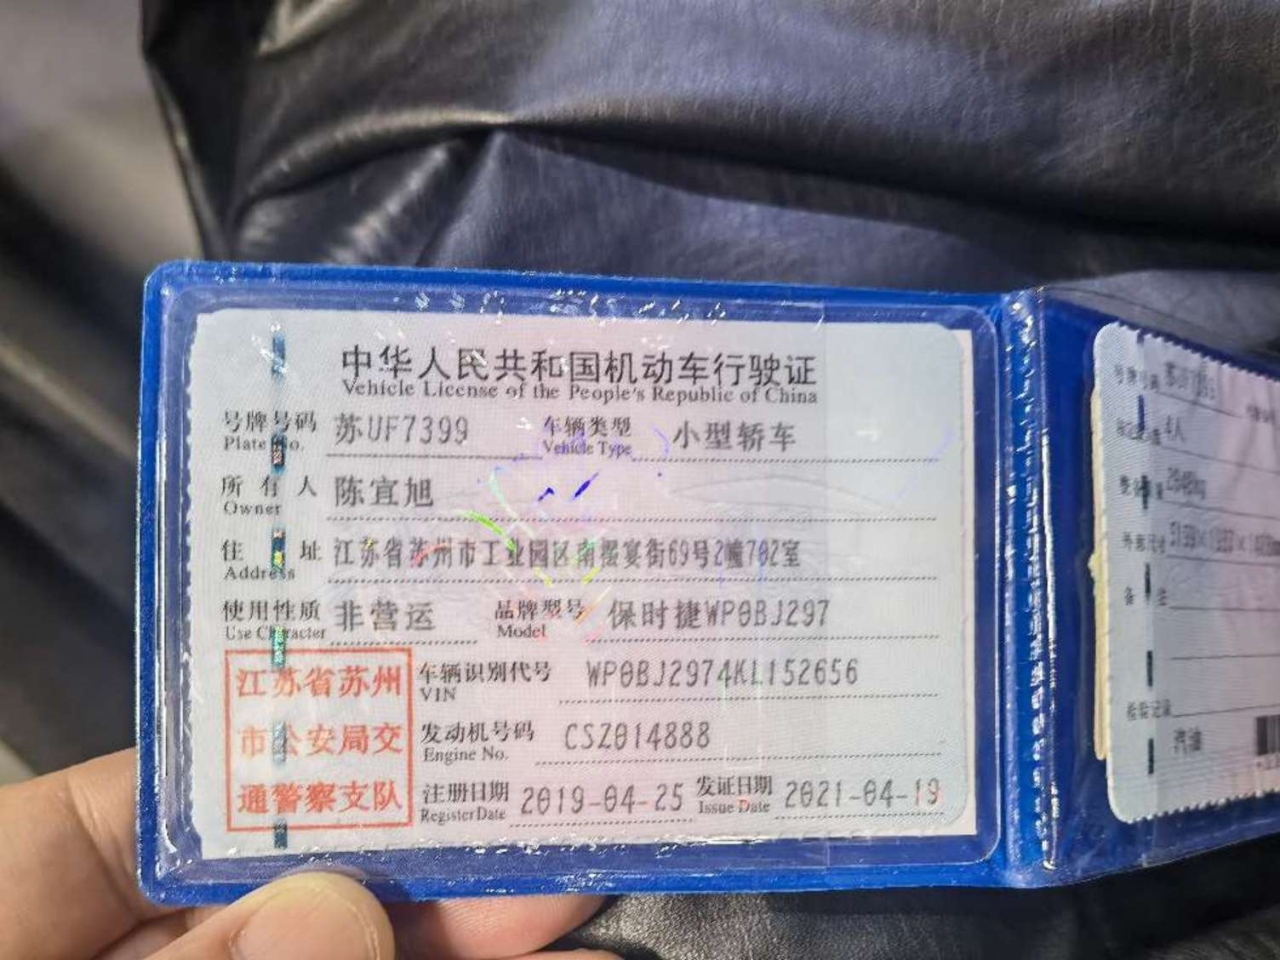 中华人民共和国机动车行驶证
Vehicle License of the People's Republic of China
号牌号码 苏UF7399 车辆类型 小型轿车
Plate No. Vehicle Type
所有人 陈宜旭
Owner
住址 江苏省苏州市工业园区南摆宴街69号2幢702室
Address
使用性质 非营运 品牌型号 保时捷WP0BJ297
Use Character Model
江苏省苏州
市公安局交
通警察支队
车辆识别代号 WP0BJ2974KL152656
VIN
发动机号码 CSZ014888
Engine No.
注册日期 2019-04-25 发证日期 2021-04-19
Register Date Issue Date
号牌号码
4人
外廓尺寸
备注
检验记录
汽油